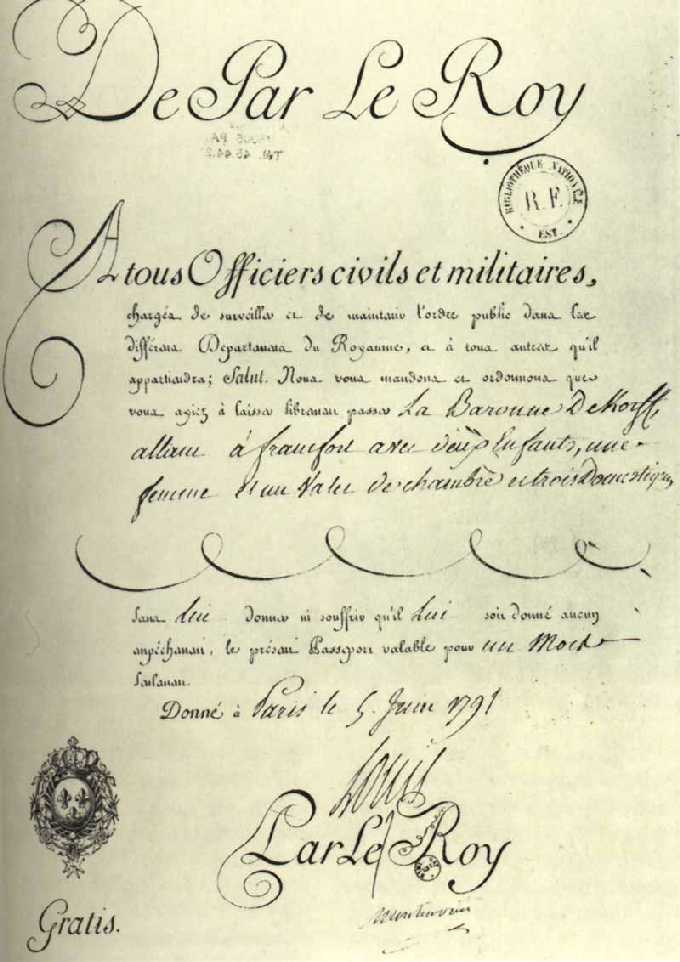 De Par Le Roy
BIBLIOTHÈQUE NATIONALE
R.F.
EST.
A tous Officiers civils et militaires,
chargés de surveiller et de maintenir l'ordre public dans les
différens Départemens du Royaume, et à tous autres qu'il
appartiendra; Salut. Nous vous mandons et ordonnons que
vous ayiez à laisser librement passer La Baronne De Korff
allant à francfort avec deux Enfants, une
femme et un Valet de chambre et trois Domestiques
sans lui donner ni souffrir qu'il lui soit donné aucun
empêchement, le présent Passeport valable pour un Mois
seulement.
Donné à Paris le 5 Juin 1791
Louis
Par Le Roy
Montmorin
Gratis.